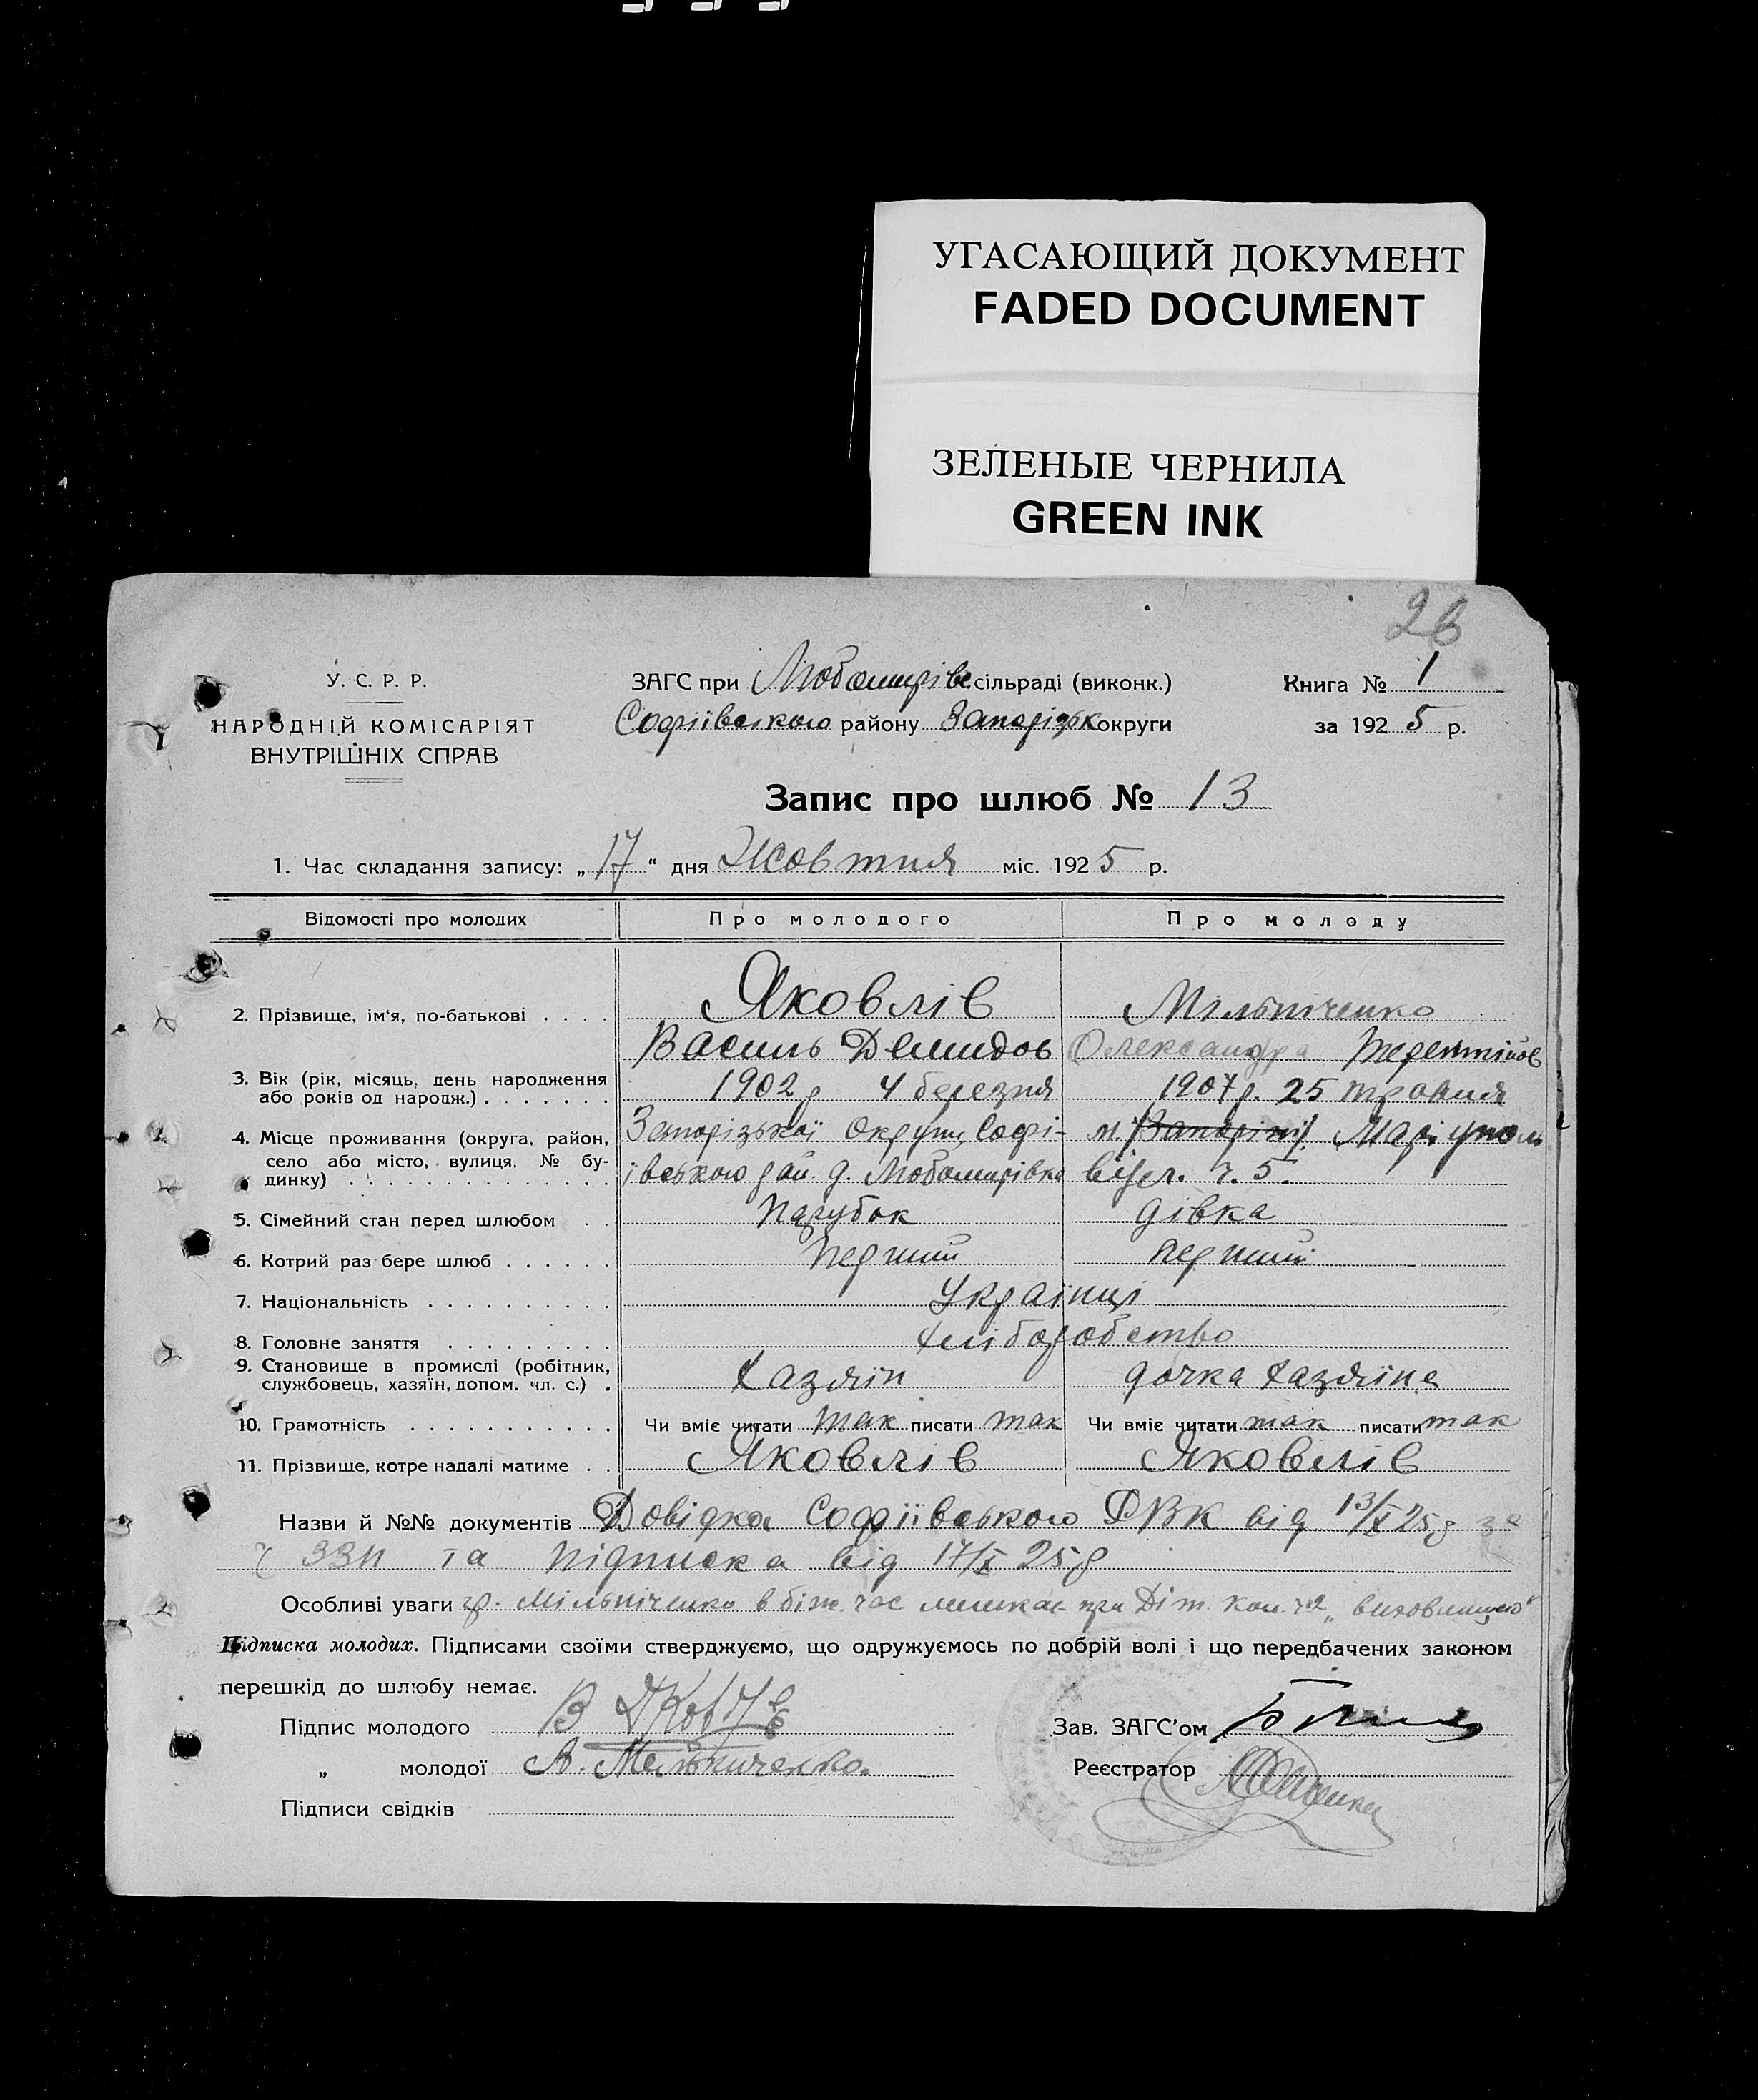 УГАСАЮЩИЙ ДОКУМЕНТ
FADED DOCUMENT
ЗЕЛЕНЫЕ ЧЕРНИЛА
GREEN INK
26
У. С. Р. Р.
НАРОДНІЙ КОМІСАРІЯТ
ВНУТРІШНІХ СПРАВ
ЗАГС при Любомирівс сільраді (виконк.)
Софіївського району Запорізьк округи
Книга № 1
за 1925 р.
Запис про шлюб № 13
1. Час складання запису: „17“ дня Жовтня міс. 1925 р.
Відомості про молодих Про молодого Про молоду
2. Прізвище, ім'я, по-батькові . . . . Яковлів Мільніченко
Василь Демидов Олександра Терентійов
3. Вік (рік, місяць, день народження або років од народж.) . . . . . . . 1902 р 4 березня 1907 р. 25 травня
4. Місце проживання (округа, район, село або місто, вулиця, № будинку) . . . . . . . . . . . . . .
Запорізької Округи Софі-
івського рай. д. Любомирівка
м. Запоріжї Маріуполь
ч. 5.
5. Сімейний стан перед шлюбом . . Парубок дівка
6. Котрий раз бере шлюб . . . . . . Перший перший
7. Національність . . . . . . . . . . Українці
8. Головне заняття . . . . . . . . . Хліборобство
9. Становище в промислі (робітник, службовець, хазяїн, допом. чл. с.) . Хазяїн дочка хазяїна
10. Грамотність . . . . . . . . . . . Чи вміє читати так писати так Чи вміє читати так писати так
11. Прізвище, котре надалі матиме . . Яковлів Яковлів
Назви й №№ документів Довідка Софіївського РВК від 13/X 25 р за
ч 33 та підписка від 17/X 25 р
Особливі уваги гр. Мільніченко в біж. час мешкає при Діт. кол. ч 2
Підписка молодих. Підписами своїми стверджуємо, що одружуємось по добрій волі і що передбачених законом
перешкід до шлюбу немає.
Підпис молодого В Яковлів
„ молодої А. Мельниченко.
Підписи свідків
Зав. ЗАГС'ом
Реєстратор